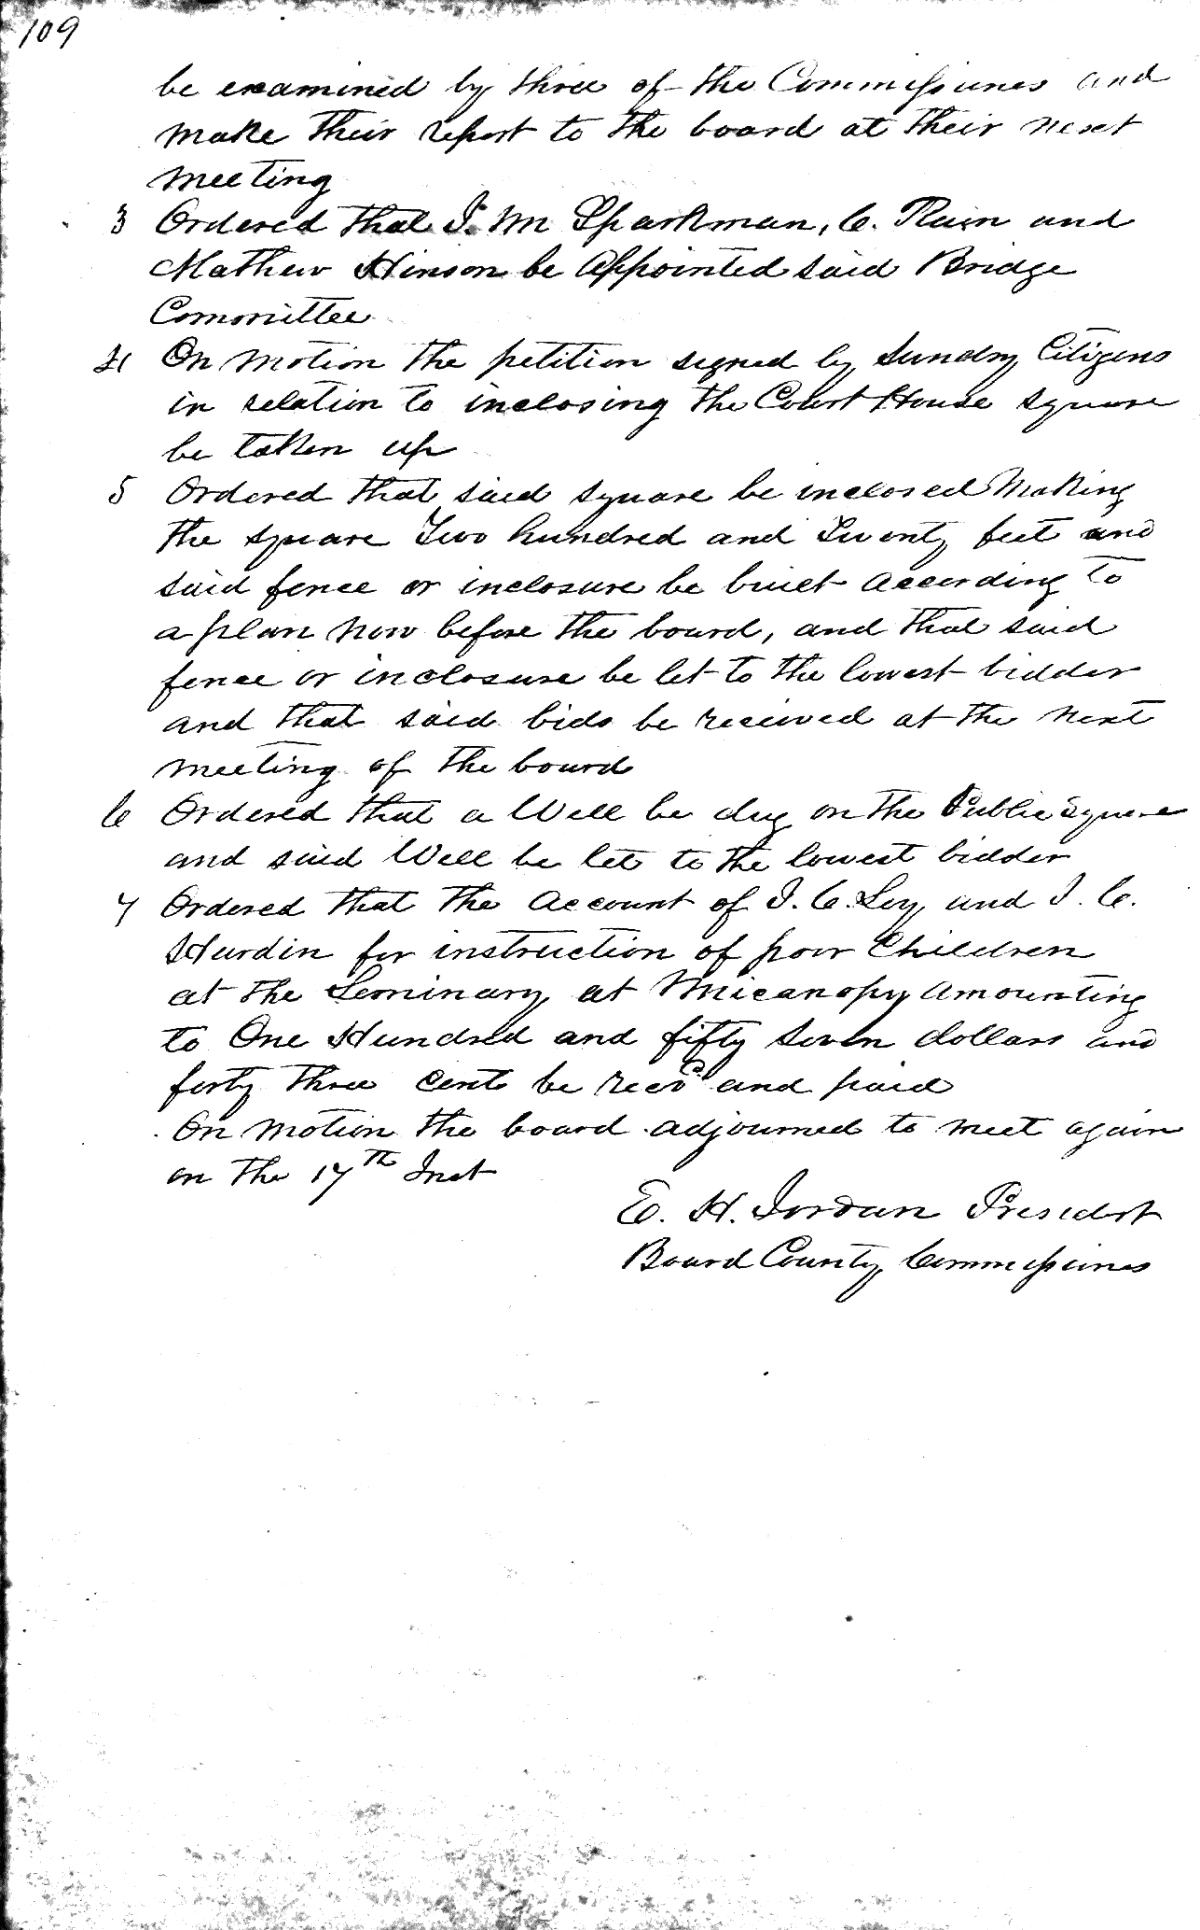 109
be examined by three of the Commissiones and
make their report to the board at their next
meeting
3 Ordered that J. M Sparkman, C. and
Mathew Hinson be appointed said Bridge
Committee
4 On motion the petition signed by Sundry Citizens
in relation to inclosing the Court House square
be taken up
5 Ordered that said square be inclosed Making
the square Two hundred and Twenty feet and
said fence or inclosure be built according to
a plan now before the board, and that said
fence or inclosure be let to the lowest bidder
and that said bids be received at the next
meeting of the board
6 Ordered that a Well be dug on the Public Square
and said Well be let to the lowest bidder
7 Ordered that the account of J. C. Ley and J. C.
Hardin for instruction of poor Children
at the Seminary at Micanopy amounting
to One Hundred and fifty seven dollars and
forty three cents be recvd and paid
On motion the board adjourned to meet again
on the 17th Inst
E. H. Jordan President
Board County Commissiones